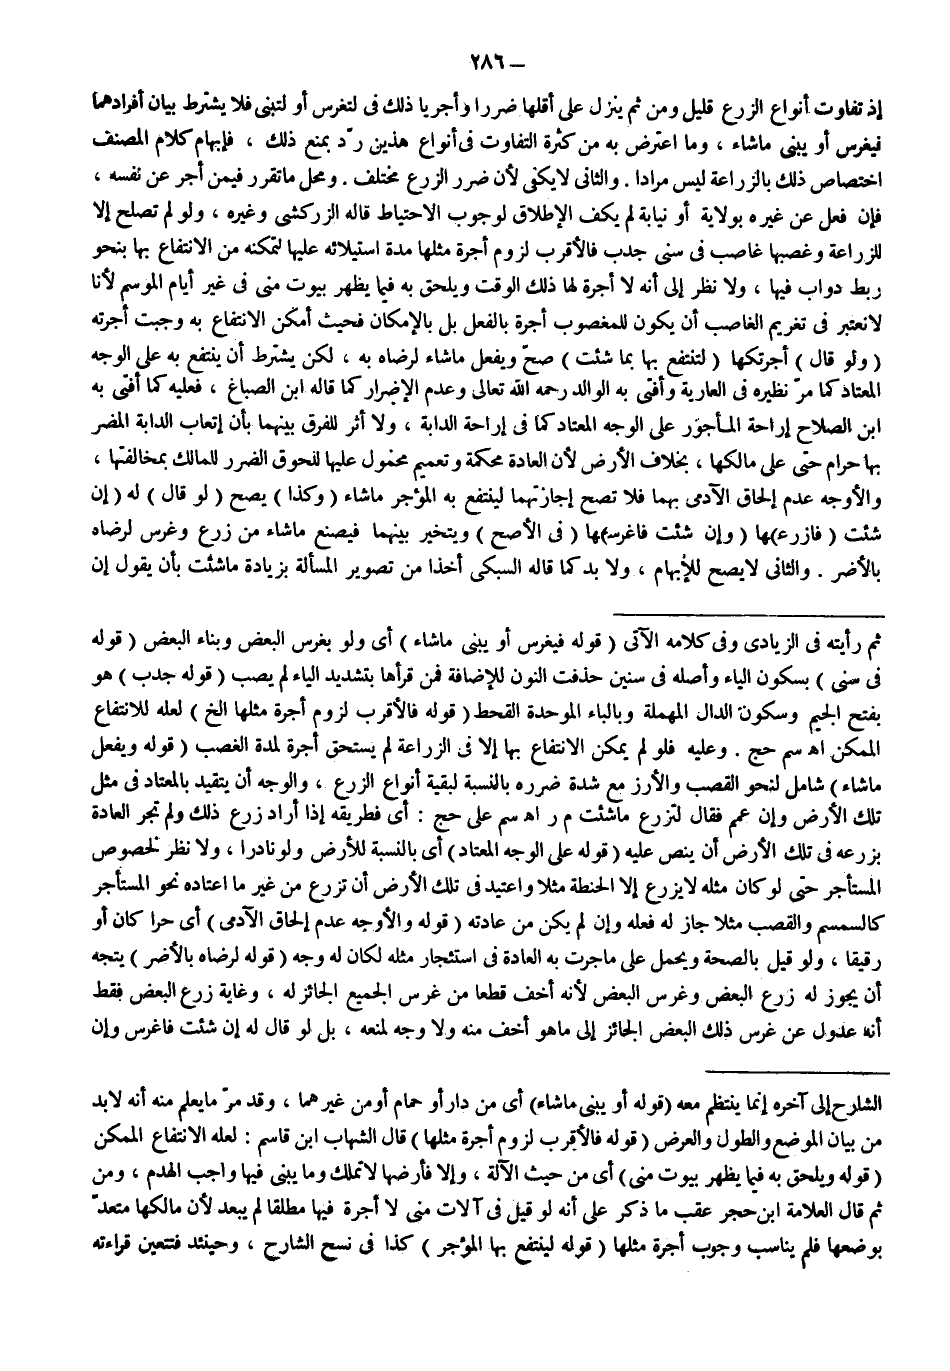 – ٢٨٦
إذ تفاوت أنواع الزرع قليل ومن ثم ينزل على أقلها ضررا وأجريا ذلك فى لتغرس أو لتبنى فلا يشترط بيان أفرادهما
فيغرس أو يبنى ماشاء ، وما اعترض به من كثرة التفاوت فى أنواع هذين ردّ بمنع ذلك ، فإيهام كلام المصنف
اختصاص ذلك بالزراعة ليس مرادا . والثانى لايكنى لأن ضرر الزرع مختلف . ومحل ماتقرر فيمن أجر عن نفسه ،
فإن فعل عن غيره بولاية أو نيابة لم يكف الإطلاق لوجوب الاحتياط قاله الزركشى وغيره ، ولو لم تصلح إلا
للزراعة وغصبها غاصب فى سنى جدب فالأقرب لزوم أجرة مثلها مدة استيلائه عليها لتمكنه من الانتفاع بها بنحو
ربط دواب فيها ، ولا نظر إلى أنه لا أجرة لها ذلك الوقت ويلحق به فيما يظهر بيوت منى فى غير أيام الموسم لأنا
لانعتبر فى تغريم الغاصب أن يكون للمغصوب أجرة بالفعل بل بالإمكان فحيث أمكن الانتفاع به وجبت أجرته
( ولو قال ) أجرتكها ( لتنتفع بها بما شئت ) صحّ ويفعل ماشاء لرضاه به ، لكن يشترط أن ينتفع به على الوجه
المعتاد كما مرّ نظيره فى العارية وأفتى به الوالد رحمه الله تعالى وعدم الإضرار كما قاله ابن الصباغ ، فعليه كما أفتى به
ابن الصلاح إراحة المأجور على الوجه المعتاد كما فى إراحة الدابة ، ولا أثر للفرق بينهما بأن إتعاب الدابة المضر
بها حرام حتى على مالكها ، بخلاف الأرض لأن العادة محكمة وتعميم محمول عليها للحوق الضرر للمالك بمخالفتها ،
والأوجه عدم إلحاق الآدمى بهما فلا تصح إجازتهما لينتفع به المؤجر ماشاء ( وكذا ) يصح ( لو قال ) له ( إن
شئت ( فازرع)ها ( وإن شئت فاغرس)ها ( فى الأصح ) ويتخير بينهما فيصنع ماشاء من زرع وغرس لرضاه
بالأضر . والثانى لايصح للإبهام ، ولا بد كما قاله السبكى أخذا من تصوير المسألة بزيادة ماشئت بأن يقول إن
ثم رأيته فى الزيادى وفى كلامه الآتى ( قوله فيغرس أو يبنى ماشاء ) أى ولو بغرس البعض وبناء البعض ( قوله
فى سنى ) بسكون الياء وأصله فى سنين حذفت النون للإضافة فمن قرأها بتشديد الياء لم يصب ( قوله جدب ) هو
بفتح الجيم وسكون الدال المهملة وبالباء الموحدة القحط ( قوله فالأقرب لزوم أجرة مثلها الخ ) لعله للانتفاع
الممكن اه سم حج . وعليه فلو لم يمكن الانتفاع بها إلا فى الزراعة لم يستحق أجرة لمدة الغصب ( قوله ويفعل
ماشاء ) شامل لنحو القصب والأرز مع شدة ضرره بالنسبة لبقية أنواع الزرع ، والوجه أن يتقيد بالمعتاد فى مثل
تلك الأرض وإن عمم فقال لتزرع ماشئت م ر اه سم على حج : أى فطريقه إذا أراد زرع ذلك ولم تجر العادة
بزرعه فى تلك الأرض أن ينص عليه ( قوله على الوجه المعتاد ) أى بالنسبة للأرض ولو نادرا ، ولا نظر لخصوص
المستأجر حتى لو كان مثله لايزرع إلا الحنطة مثلا واعتيد فى تلك الأرض أن تزرع من غير ما اعتاده نحو المستأجر
كالسمسم والقصب مثلا جاز له فعله وإن لم يكن من عادته ( قوله والأوجه عدم إلحاق الآدمى ) أى حرا كان أو
رقيقا ، ولو قيل بالصحة ويحمل على ماجرت به العادة فى استئجار مثله لكان له وجه ( قوله لرضاه بالأضر ) يتجه
أن يجوز له زرع البعض وغرس البعض لأنه أخف قطعا من غرس الجميع الجائز له ، وغاية زرع البعض فقط
أنه عدول عن غرس ذلك البعض الجائز إلى ماهو أخف منه ولا وجه لمنعه ، بل لو قال له إن شئت فاغرس وإن
الشارح إلى آخره إنما ينتظم معه (قوله أو يبنى ماشاء) أى من دار أو حمام أو من غيرهما ، وقد مرّ مايعلم منه أنه لابد
من بيان الموضع والطول والعرض ( قوله فالأقرب لزوم أجرة مثلها ) قال الشهاب ابن قاسم : لعله الانتفاع الممكن
( قوله ويلحق به فيما يظهر بيوت منى ) أى من حيث الآلة ، وإلا فأرضها لاتملك وما يبنى فيها واجب الهدم ، ومن
ثم قال العلامة ابن حجر عقب ما ذكر على أنه لو قيل فى آلات منى لا أجرة فيها مطلقا لم يبعد لأن مالكها متعدّ
بوضعها فلم يناسب وجوب أجرة مثلها ( قوله لينتفع بها المؤجر ) كذا فى نسخ الشارح ، وحينئذ فتتعين قراءته